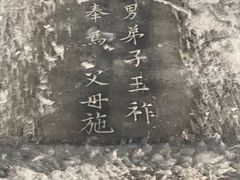 男弟子王祚
奉為父母施